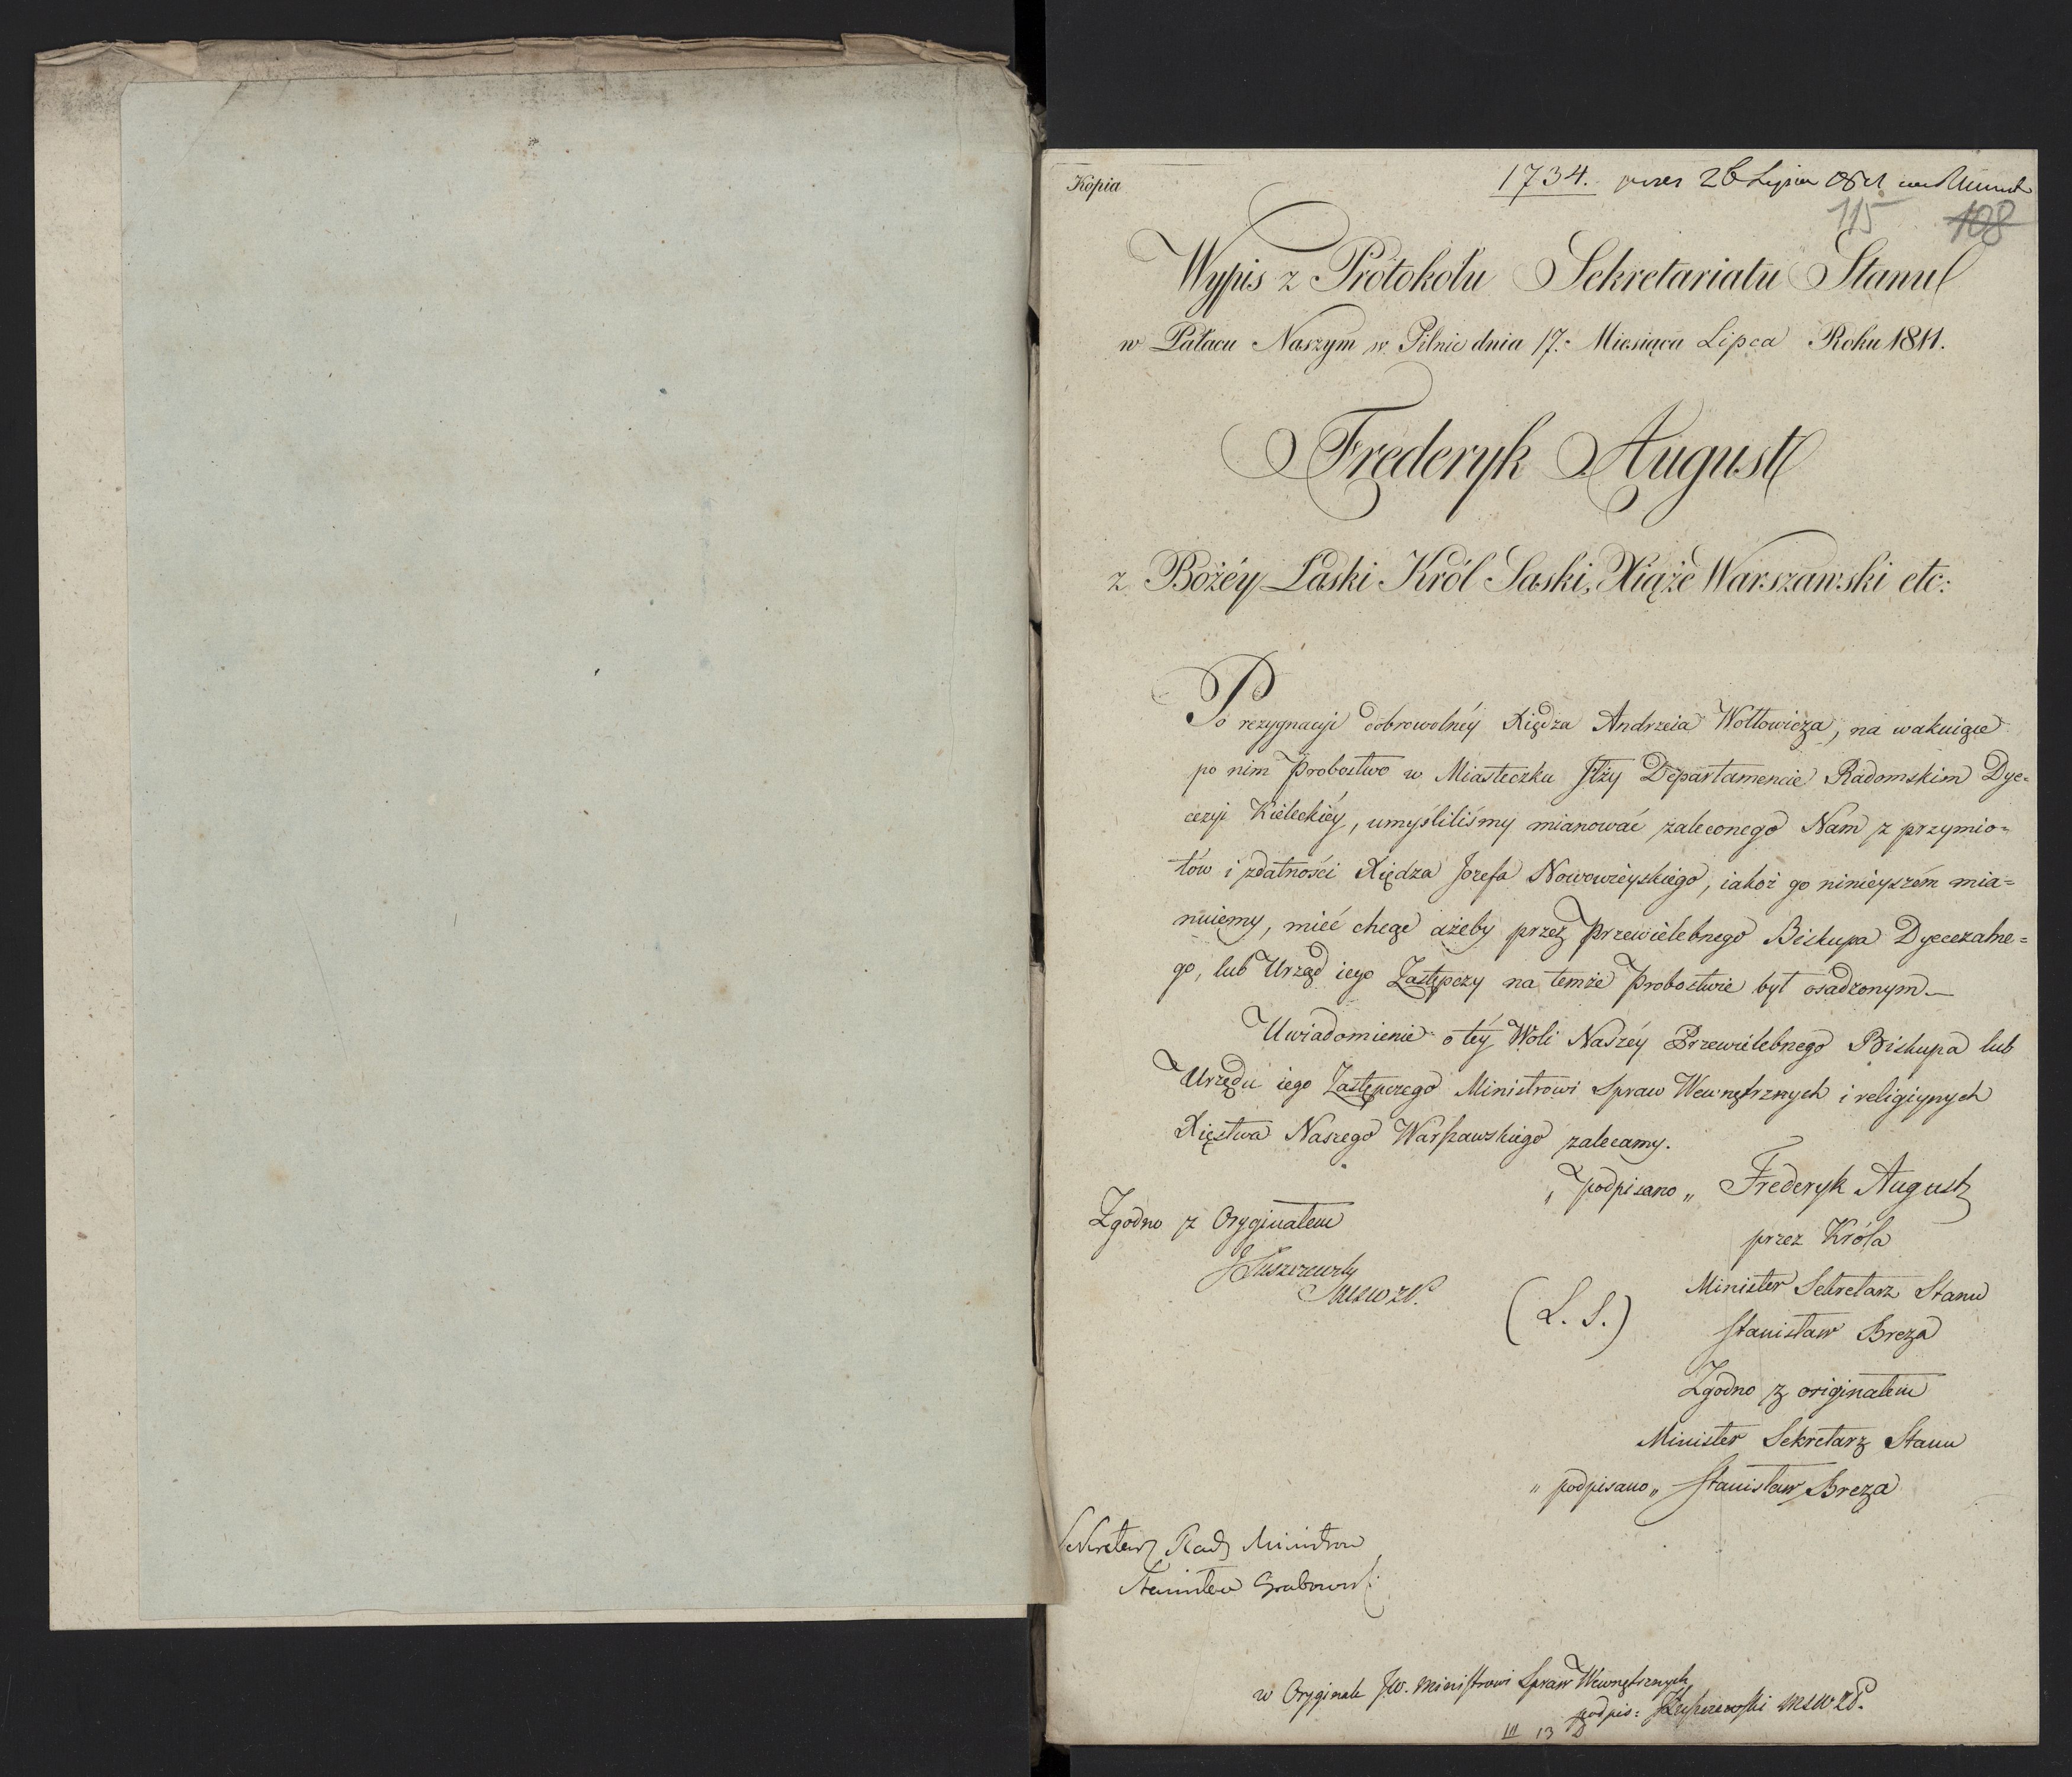 Kopia
1734. 26 Lipca
115 108
Wypis z Protokołu Sekretariatu Stanu
w Pałacu Naszym w Pilnic dnia 17. Miesiąca Lipca Roku 1811.
Frederyk August
z Bożéy Łaski Król Saski, Xiąże Warszawski etc:
Po rezygnacyi dobrowolnéy Xiędza Andrzeia Wołłowicza, na wakuiące
po nim Probostwo w Miasteczku Iłży Departamencie Radomskim Dye=
cezyi Kieleckiéy, umyśliliśmy mianować zaleconego Nam z przymio=
tów i zdatności Xiędza Jozefa Nowowieyskiego, iakoż go ninieyszém mia=
nuiemy, mieć chcąc ażeby przez Przewielebnego Biskupa Dyecezalne=
go, lub Urząd iego Zastępczy na temże Probostwie był osadzonym.—
Uwiadomienie o téy Woli Naszéy Przewielebnego Biskupa lub
Urzędu iego Zastępczego Ministrowi Spraw Wewnętrznych i religiynych
Xięstwa Naszego Warszawskiego zalecamy.
„ podpisano „ Frederyk August
przez Króla
Minister Sekretarz Stanu
Stanisław Breza
(L. S.)
Zgodno z originałem
Minister Sekretarz Stanu
„ podpisano „ Stanisław Breza
Zgodno z Oryginałem
JŁuszczewsky
MSWZP.
Sekretarz Rady Ministrow
Stanisław Grabowski
w Oryginale JW. Ministrowi Spraw Wewnętrznych
podpis: JŁuszczewski MSWZP.
III 13 D